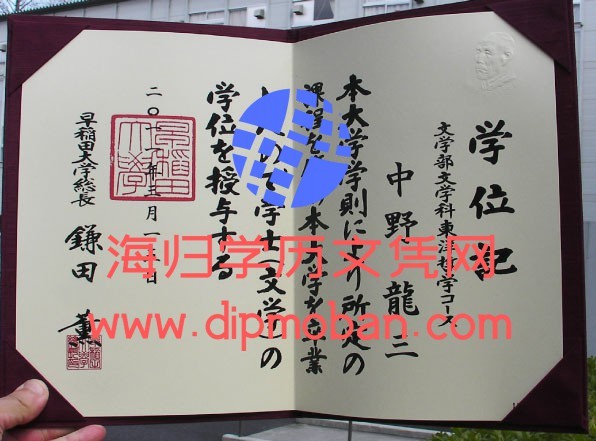 学位記
文学部文学科東洋哲学コース
中野龍三
本大学学則により所定の
課程を本大学を卒業
ので学士(文学)の
学位を授与する
二〇一一年三月
早稲田大学総長
鎌田 薫
海归学历文凭网
www.dipmoban.com